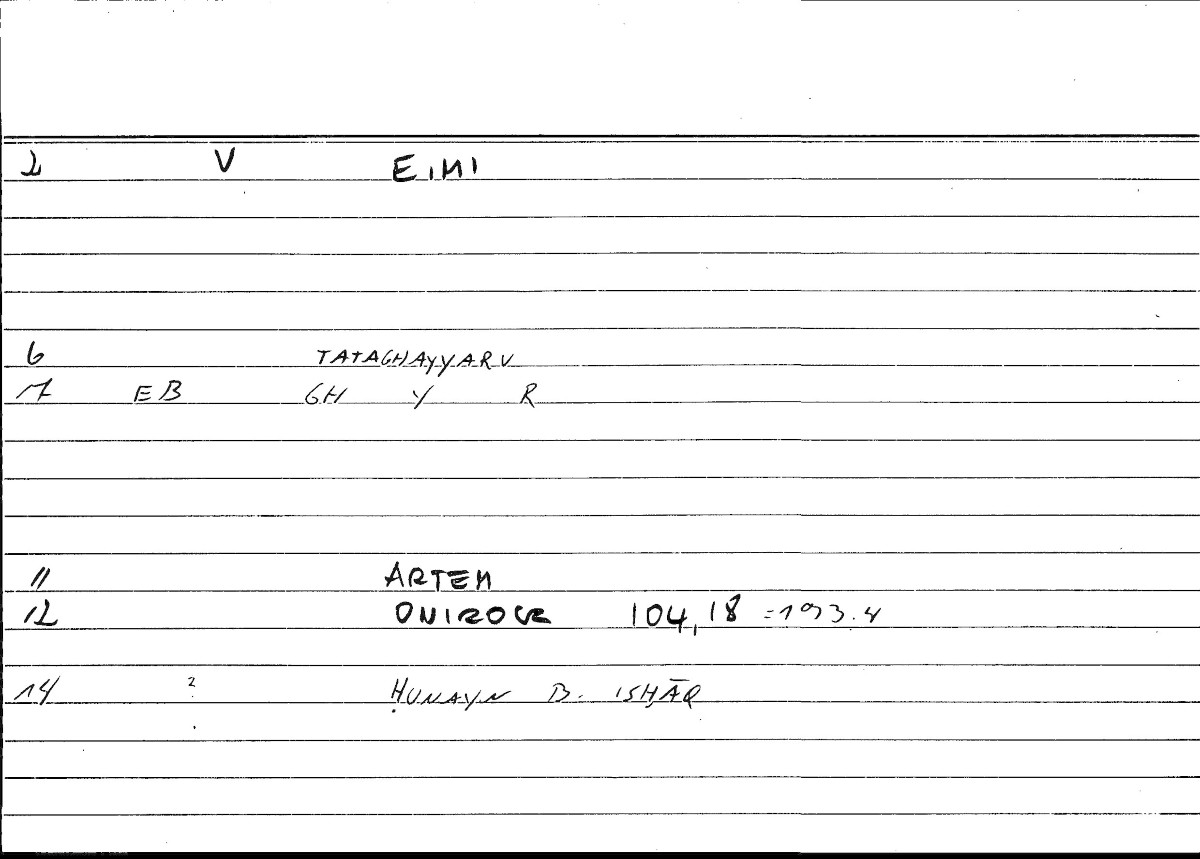 2 V EIMI
6 TATAGHAYYARU
17 EB GH Y R
11 ARTEM
12 ONIROCR 104,18 =193.4
14 ? ḤUNAYN B. ISḤĀQ